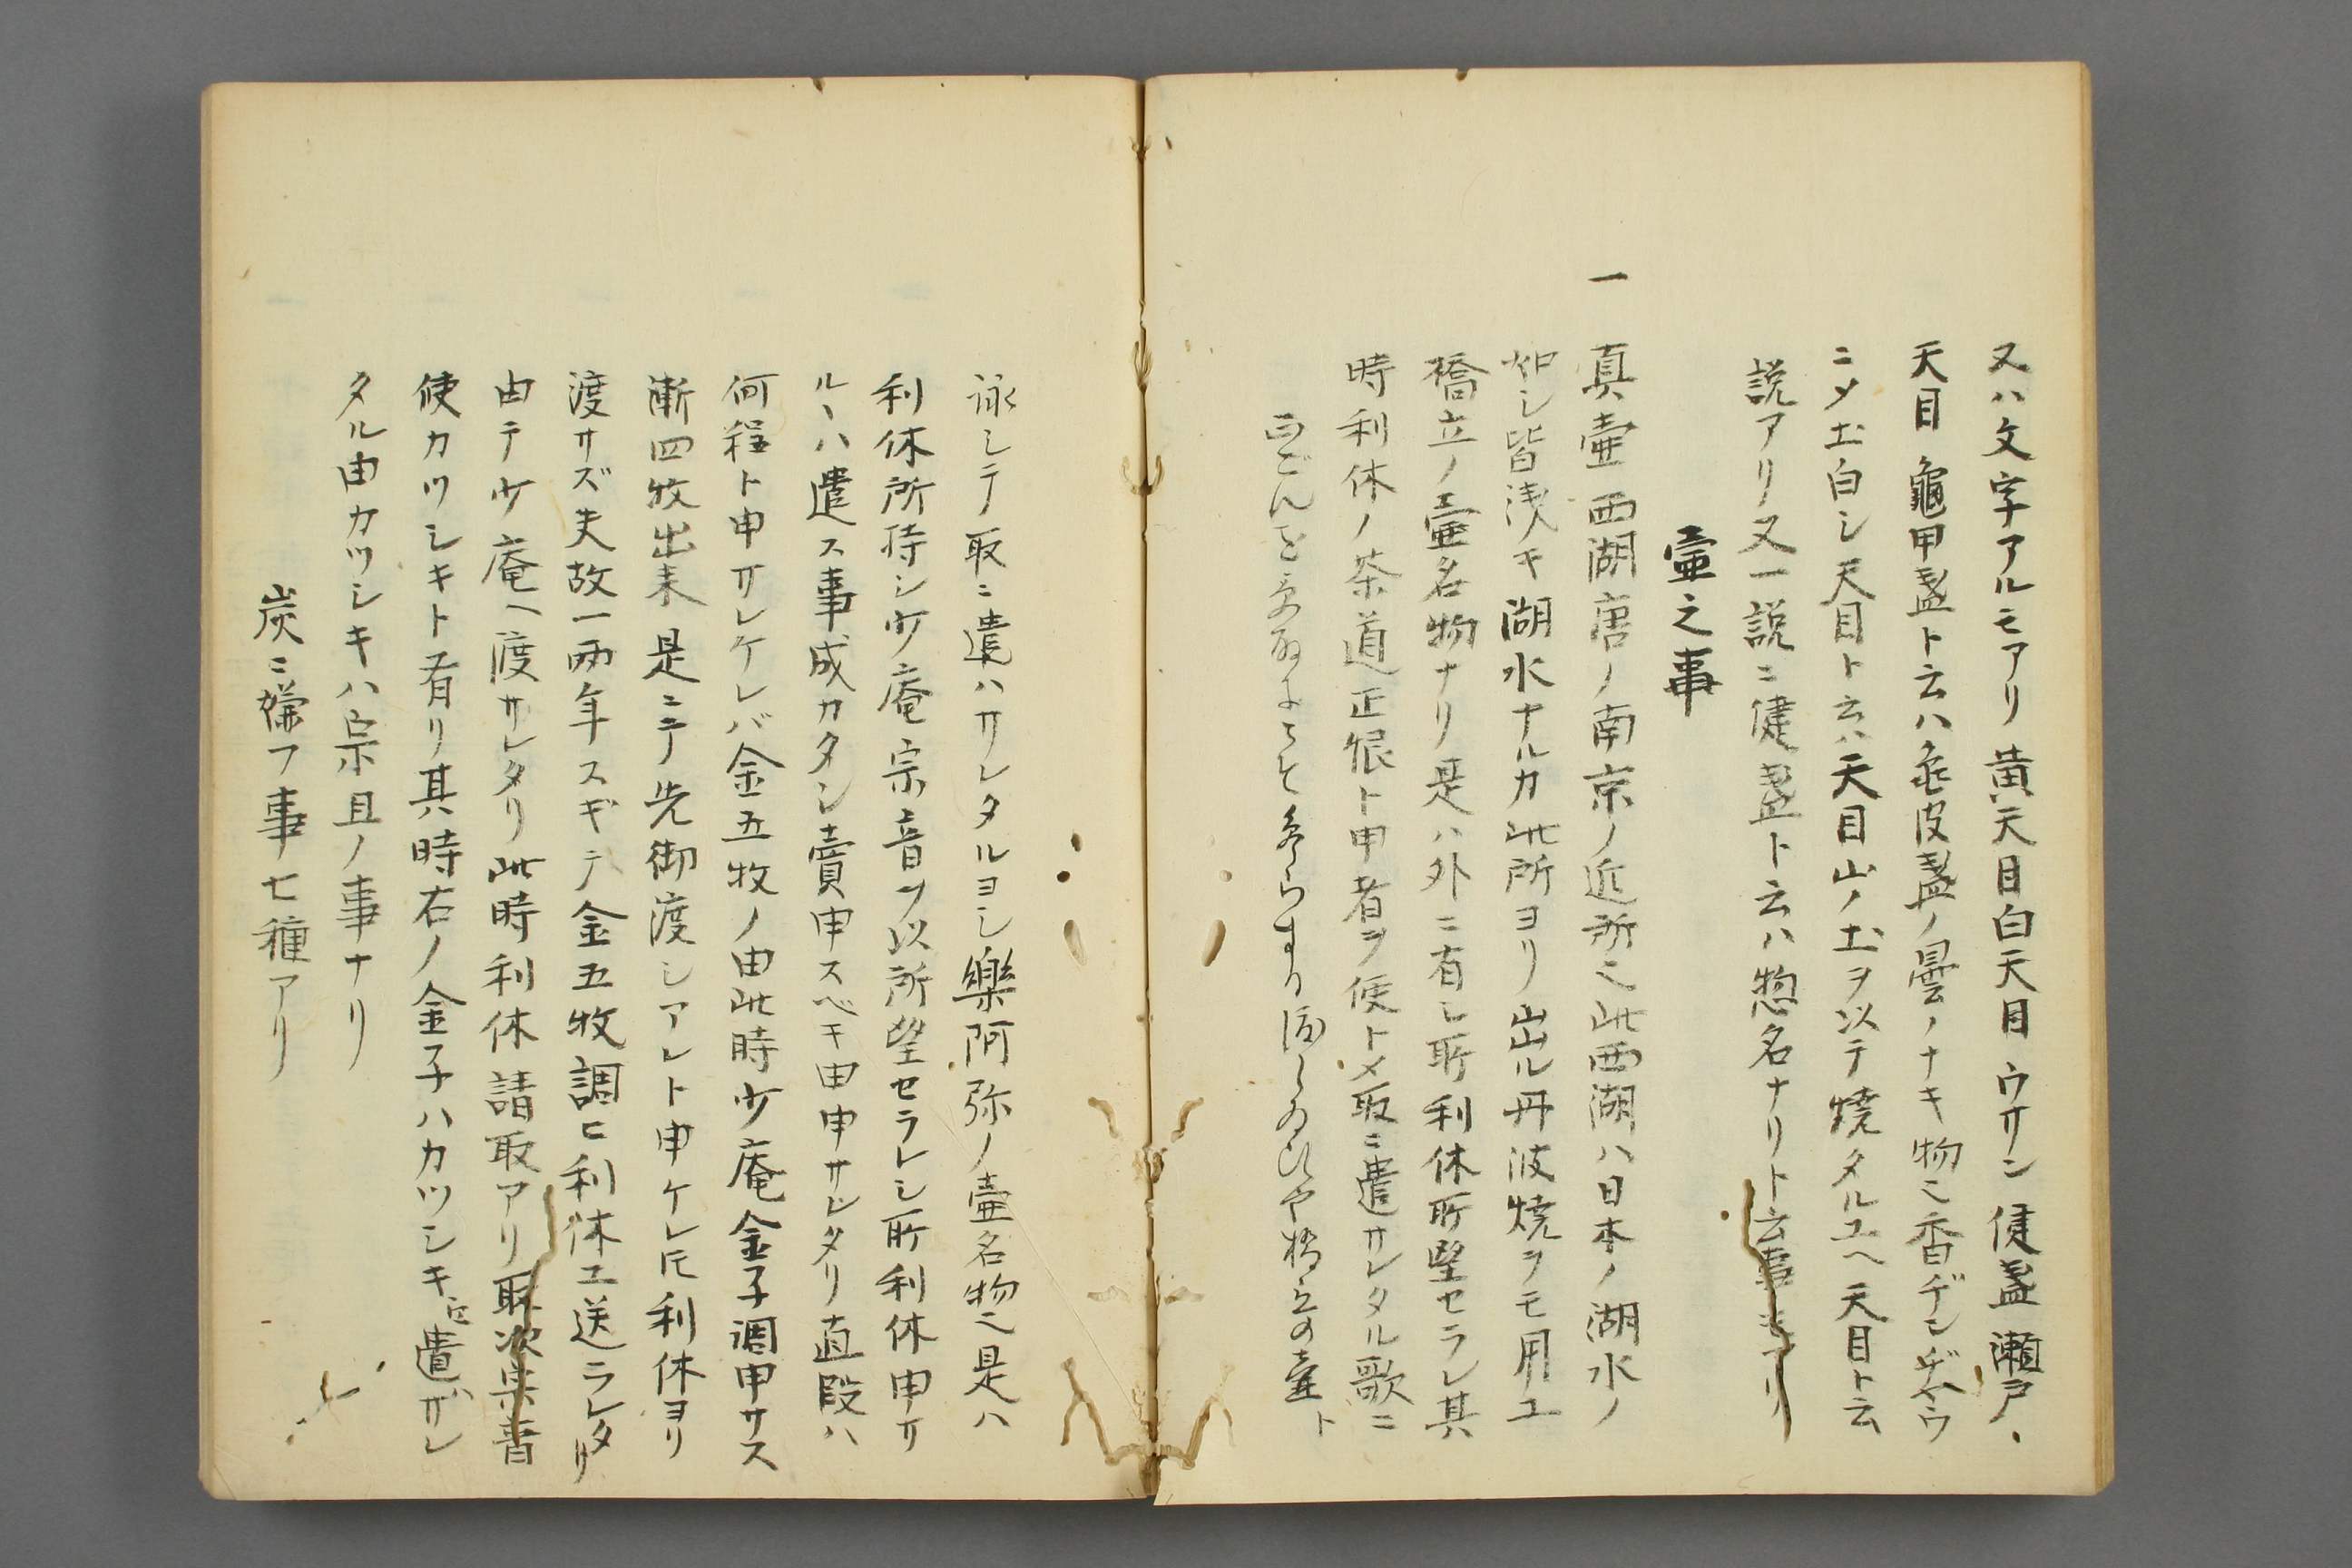 又ハ文字アルモアリ黄天目白天目ウサン健盞瀬戸
天目龜甲盞ト云ハ龜皮盞ノ曇ノナキ物也香ヂンヂヤウ
ニ〆土白シ天目ト云ハ天目山ノ土ヲ以テ燒タルユヘ天目ト云
説アリ又一説ニ健盞ト云ハ惣名ナリト云事モアリ
壷之事
一 真壷西湖唐ノ南京ノ近所也此西湖ハ日本ノ湖水ノ
如シ皆浅キ湖水ナルカ此所ヨリ出ル丹波燒ヲモ用ユ
橋立ノ壷名物ナリ是ハ外ニ有シ所利休所望セラレ其
時利休ノ茶道正恨ト申者ヲ使ト〆取ニ遣サレタル歌ニ
橋立の壷ト
詠シテ取ニ遣ハサレタルヨシ樂阿弥ノ壷名物也是ハ
利休所持シ少庵宗音ヲ以所望セラレシ所利休申サ
ルヽハ遣ス事成カタシ賣申スベキ由申サレタリ直段ハ
何程ト申サレケレバ金五牧ノ由此時少庵金子調申サス
漸四牧出来是ニテ先御渡シアレト申ケレ𪜈利休ヨリ
渡サズ夫故一両年スギテ金五牧調ヒ利休エ送ラレタリ
由テ少庵ヘ渡サレタリ此時利休請取アリ取次宗音
使カツシキト有リ其時右ノ金子ハカツシキ遣ザレ
タル由カツシキハ宗旦ノ事ナリ
炭ニ嫌フ事七種アリ